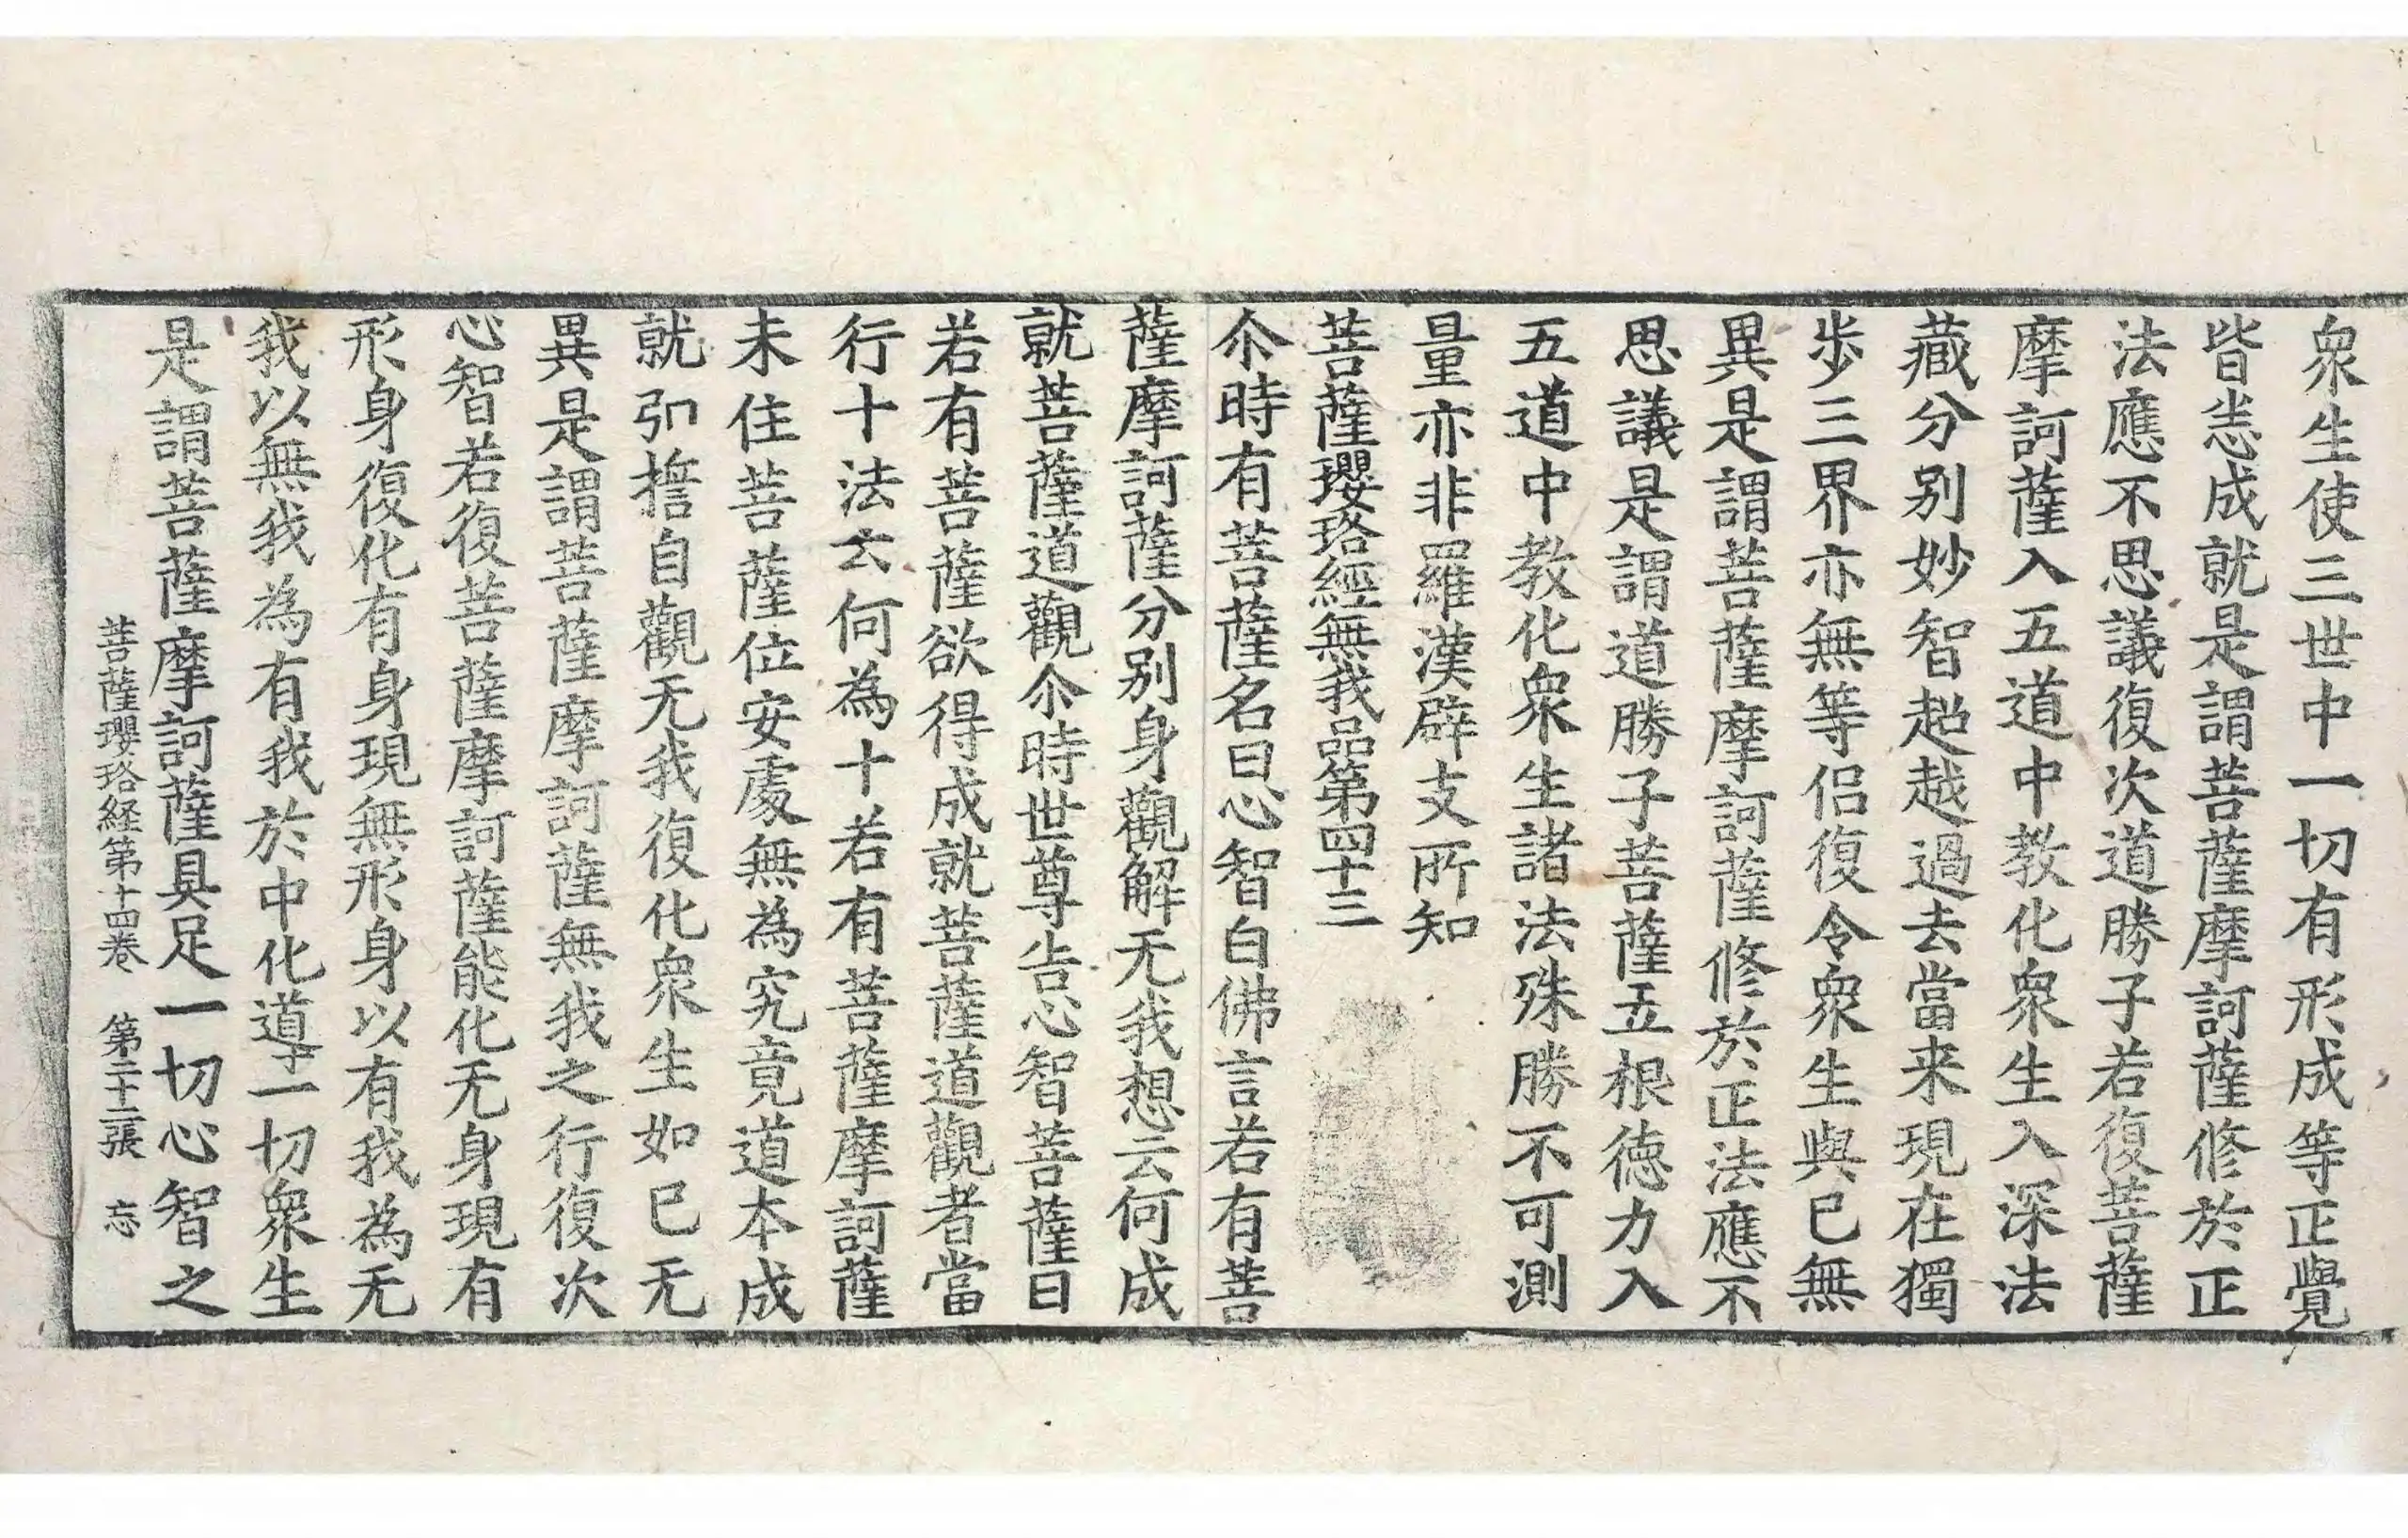 衆生使三世中一切有形成等正覺
皆恙成就是謂菩薩摩訶薩修於正
法應不思議復次道勝子若復菩薩
摩訶薩入五道中教化衆生入深法
藏分別妙智超越過去當来現在獨
步三界亦無等侣復令衆生與已無
異是謂菩薩摩訶薩修於正法應不
思議是謂道勝子菩薩五根徳力入
五道中教化衆生諸法殊勝不可測
量亦非羅漢辟支所知
菩薩瓔珞經無我品第四十三
尒時有菩薩名曰心智白佛言若有菩
薩摩訶薩分别身觀解无我想云何成
就菩薩道觀尒時世尊告心智菩薩曰
若有菩薩欲得成就菩薩道觀者當
行十法云何為十若有菩薩摩訶薩
未住菩薩位安處無為究竟道本成
就弘擔自觀无我復化衆生如已无
異是謂菩薩摩訶薩無我之行復次
心智若復菩薩摩訶薩能化无身現有
形身復化有身現無形身以有我為无
我以無我為有我於中化道十一切衆生
是謂菩薩摩訶薩具足一切心智之
菩薩瓔珞経第十四卷 第二十二張 忘